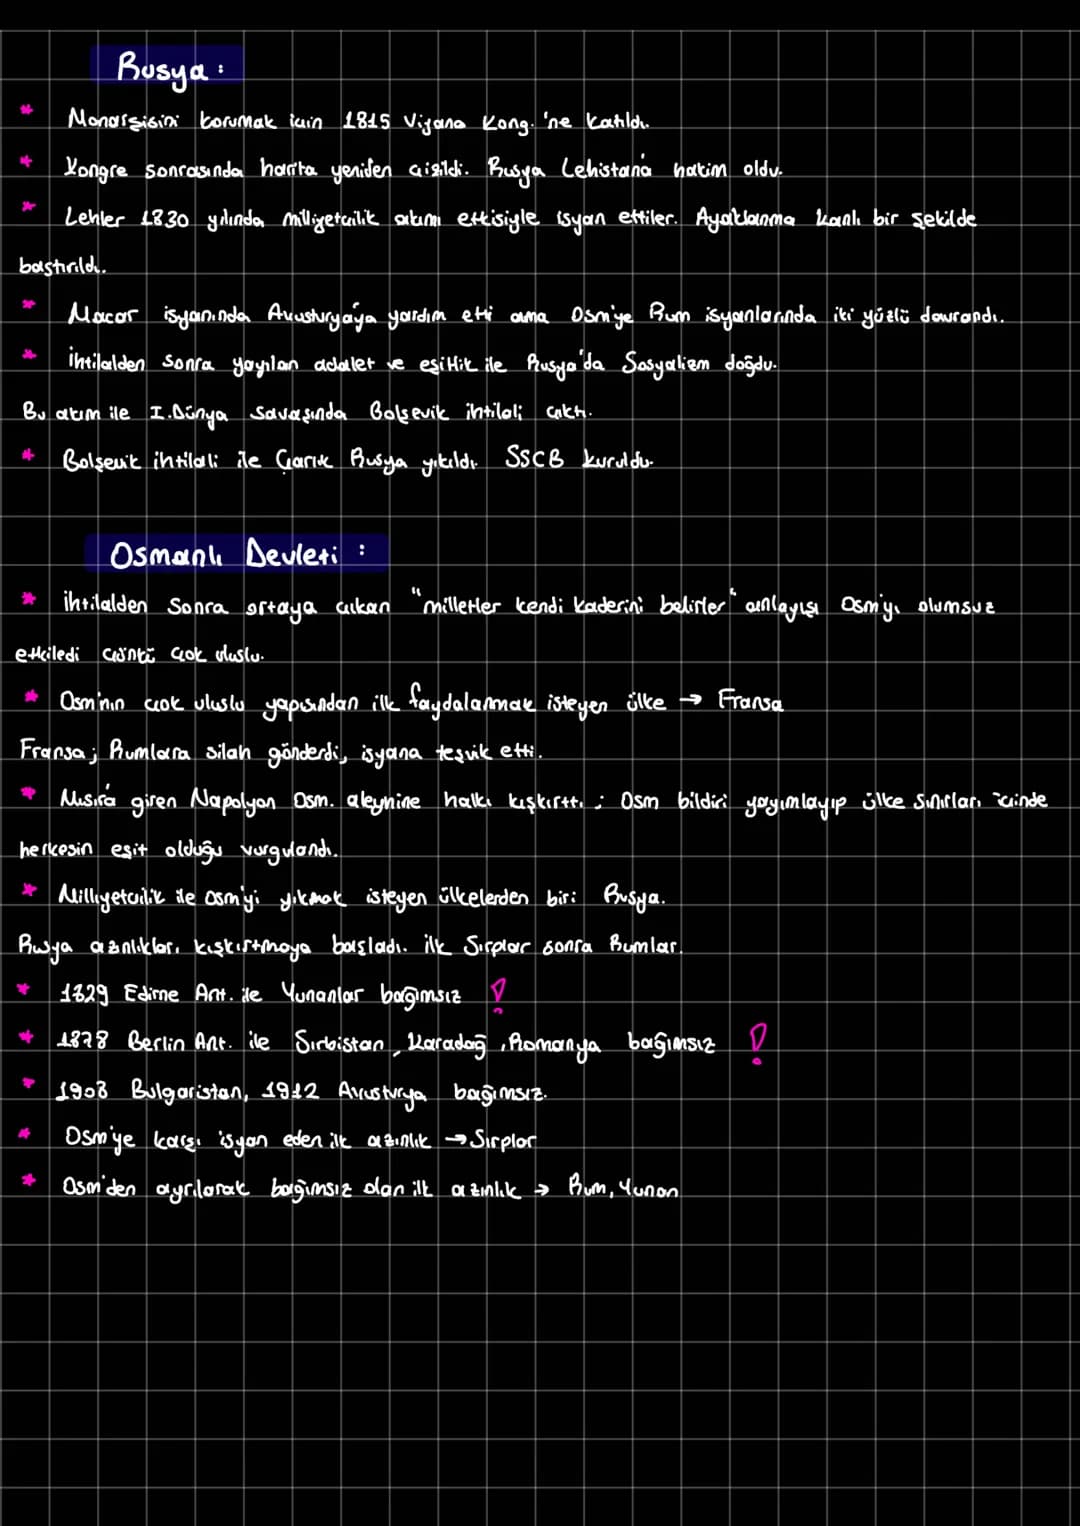 Rusya :
* Monarşisini korumak için 1815 Viyana Kong. 'ne katıldı.
* Kongre sonrasında harita yeniden çizildi. Rusya Lehistan'a hakim oldu.
* Lehler 1830 yılında milliyetçilik akımı etkisiyle isyan ettiler. Ayaklanma kanlı bir şekilde
bastırıldı.
* Macar isyanında Avusturya'ya yardım etti ama Osm'ye Rum isyanlarında iki yüzlü davrandı.
* İhtilalden sonra yayılan adalet ve eşitlik ile Rusya'da Sosyalizm doğdu.
Bu akım ile I.Dünya Savaşında Bolşevik ihtilali çıktı.
* Bolşevik ihtilali ile Çarlık Rusya yıkıldı. SSCB kuruldu.
Osmanlı Devleti :
* İhtilalden sonra ortaya çıkan "milletler kendi kaderini belirler" anlayışı Osm'yı olumsuz
etkiledi çünkü çok uluslu.
* Osm'nın çok uluslu yapısından ilk faydalanmak isteyen ülke → Fransa
Fransa; Rumlara silah gönderdi, isyana teşvik etti.
* Mısır'a giren Napolyon Osm. aleyhine halkı kışkırttı ; Osm bildiri yayımlayıp ülke sınırları içinde
herkesin eşit olduğu vurgulandı.
* Milliyetçilik ile Osm'yi yıkmak isteyen ülkelerden biri Rusya.
Rusya azınlıkları kışkırtmaya başladı. ilk Sırplar sonra Rumlar.
* 1829 Edirne Ant. ile Yunanlar bağımsız !
* 1878 Berlin Ant. ile Sırbistan, Karadağ, Romanya bağımsız !
* 1908 Bulgaristan, 1912 Avusturya bağımsız.
* Osm'ye karşı isyan eden ilk azınlık → Sırplar
* Osm'den ayrılarak bağımsız olan ilk azınlık → Rum, Yunan